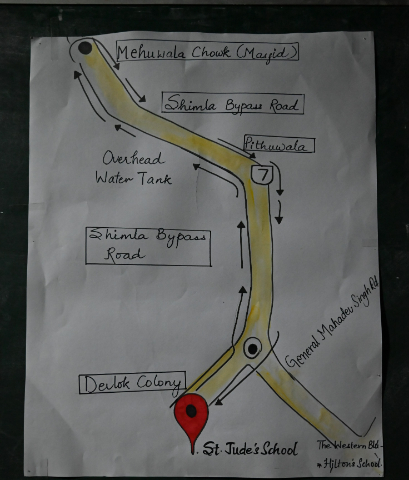 Mehuwala Chowk (Masjid)
Shimla Bypass Road
Pithuwala
7
Overhead
Water Tank
Shimla Bypass
Road
General Mahadev Singh Rd
Devlok Colony
St. Jude's School
The Western
Hilton's School.